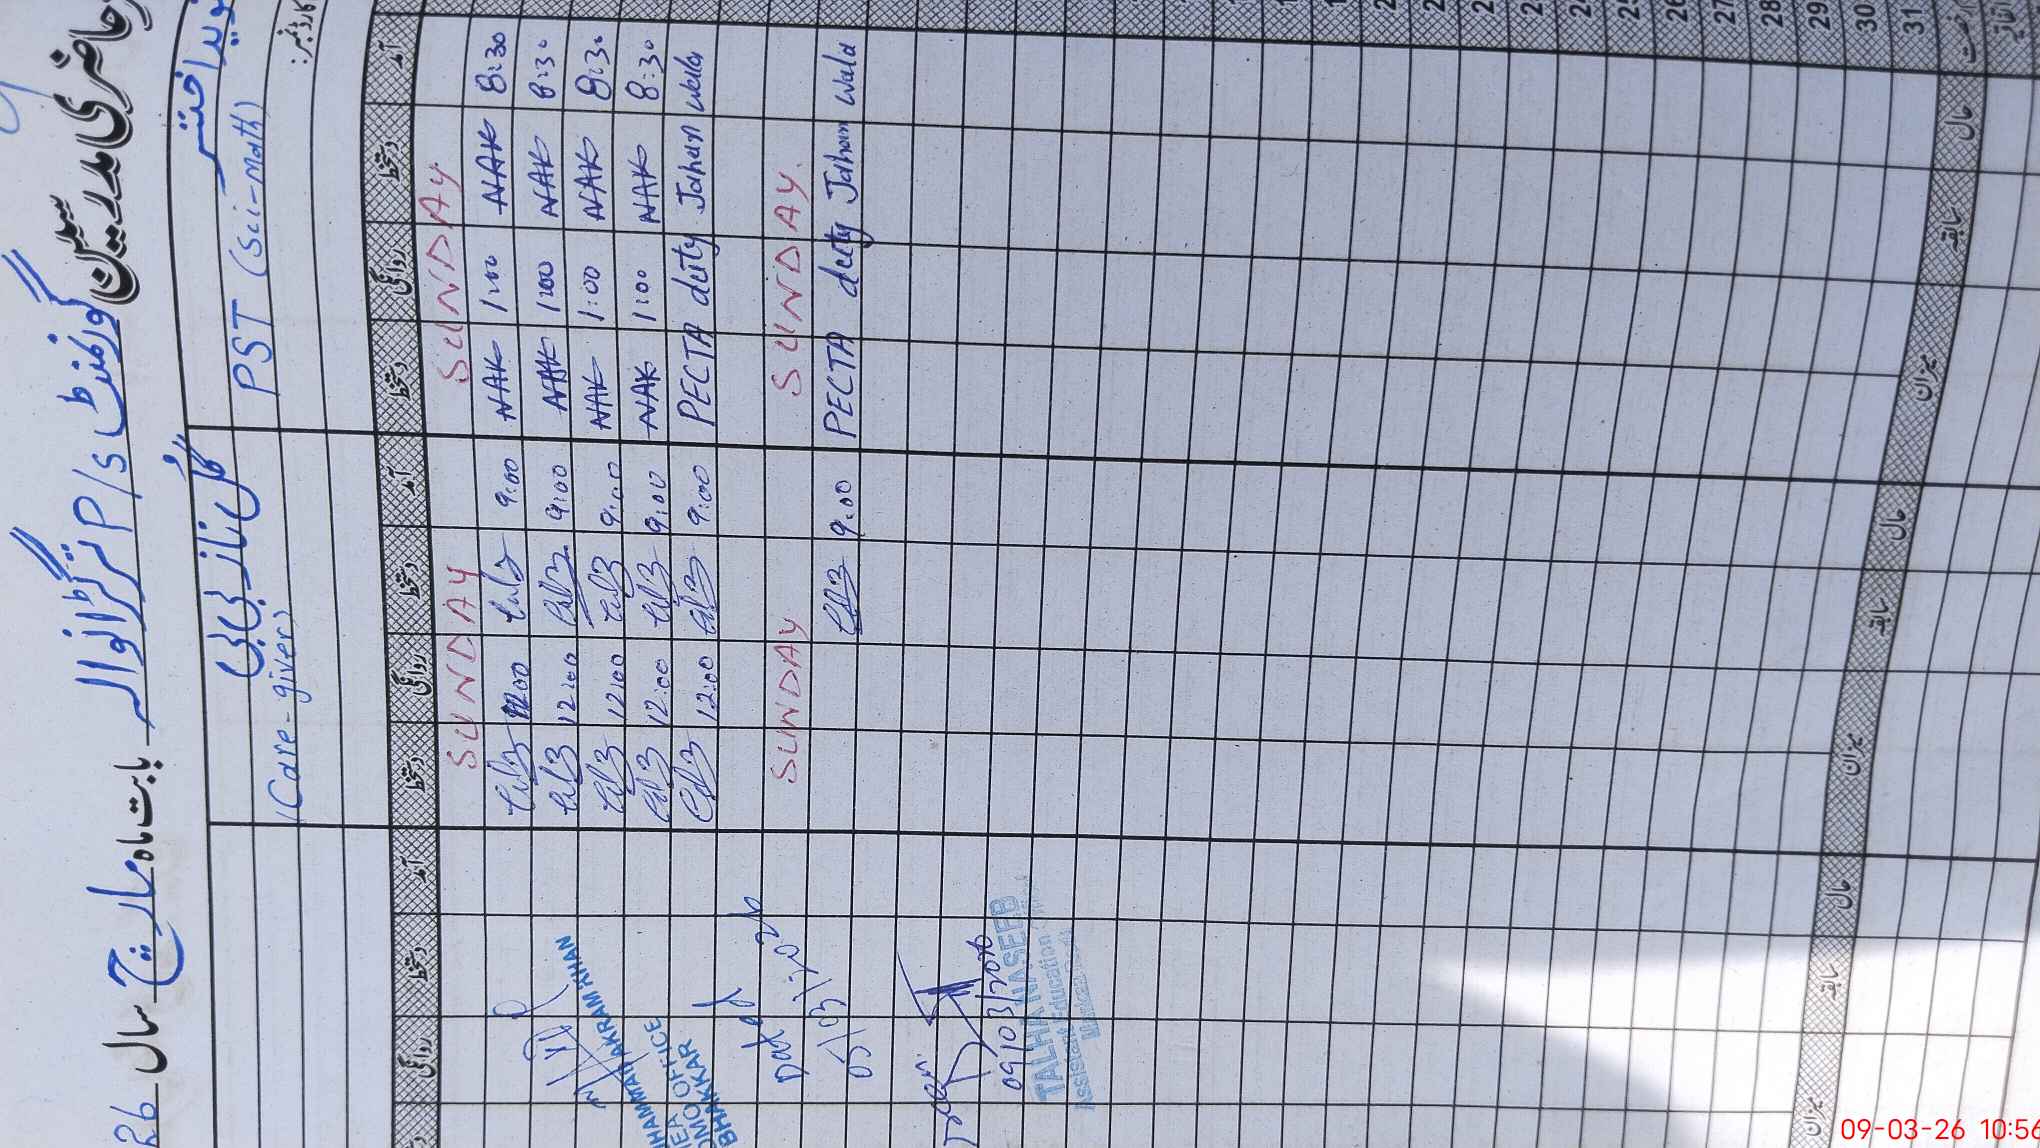 حاضری مدرسین
گورنمنٹ P/S ترگڑانوالہ بابت ماہ مارچ سال 26
نوید اختر
PST (Sci-Math)
کارڈ نمبر:
گل ناز بی بی
(Care-giver)
آمد دستخط روانگی دستخط آمد دستخط روانگی دستخط آمد دستخط روانگی
SUNDAY SUNDAY
8:30 NAK 1:00 NAK 9:00 12:00
8:30 NAK 1:00 NAK 9:00 12:00
8:30 NAK 1:00 NAK 9:00 12:00
8:30 NAK 1:00 NAK 9:00 12:00
PECTA duty Jahan Wala 9:00 12:00
SUNDAY SUNDAY
PECTA duty Jahan Wala 9:00
MUHAMMAD AKRAM KHAN
MEA OFFICE
DMO OFFICE
BHAKKAR
Dated
05/03/2026
09/03/2026
TALHA HASEEB
Assistant Education
Markaz
26
27
28
29
30
31
حال سابقہ میزان حال سابقہ میزان حال سابقہ میزان
09-03-26 10:56